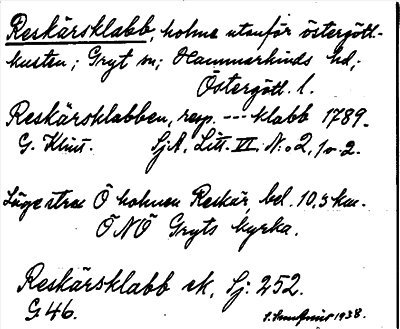 Reskärsklabb, holme utanför östergötl.-
kusten; Gryt sn; Hammarkinds hd;
Östergötl. l.
Reskärsklabben, resp. --- klabb 1789.
G. Klint. SjA, Litt. VI. N:o 2, 1 o. 2.
Läge strax Ö holmen Reskär, bel. 10,5 km.
ÖNÖ Gryts kyrka.
Reskärsklabb ek. Sj: 252.
G 46. 1938.